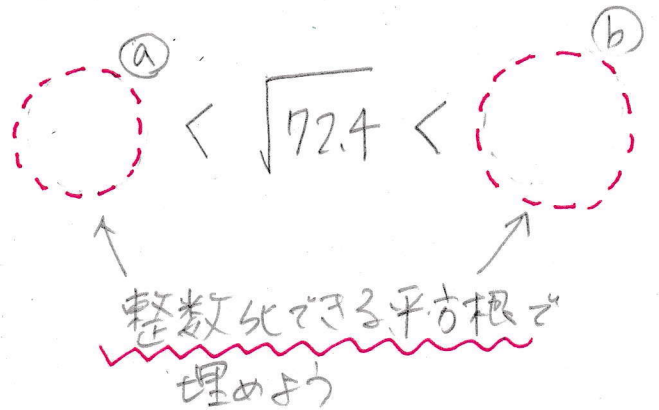 ⓐ ⓑ
< √72.4 <
整数化できる平方根で
埋めよう